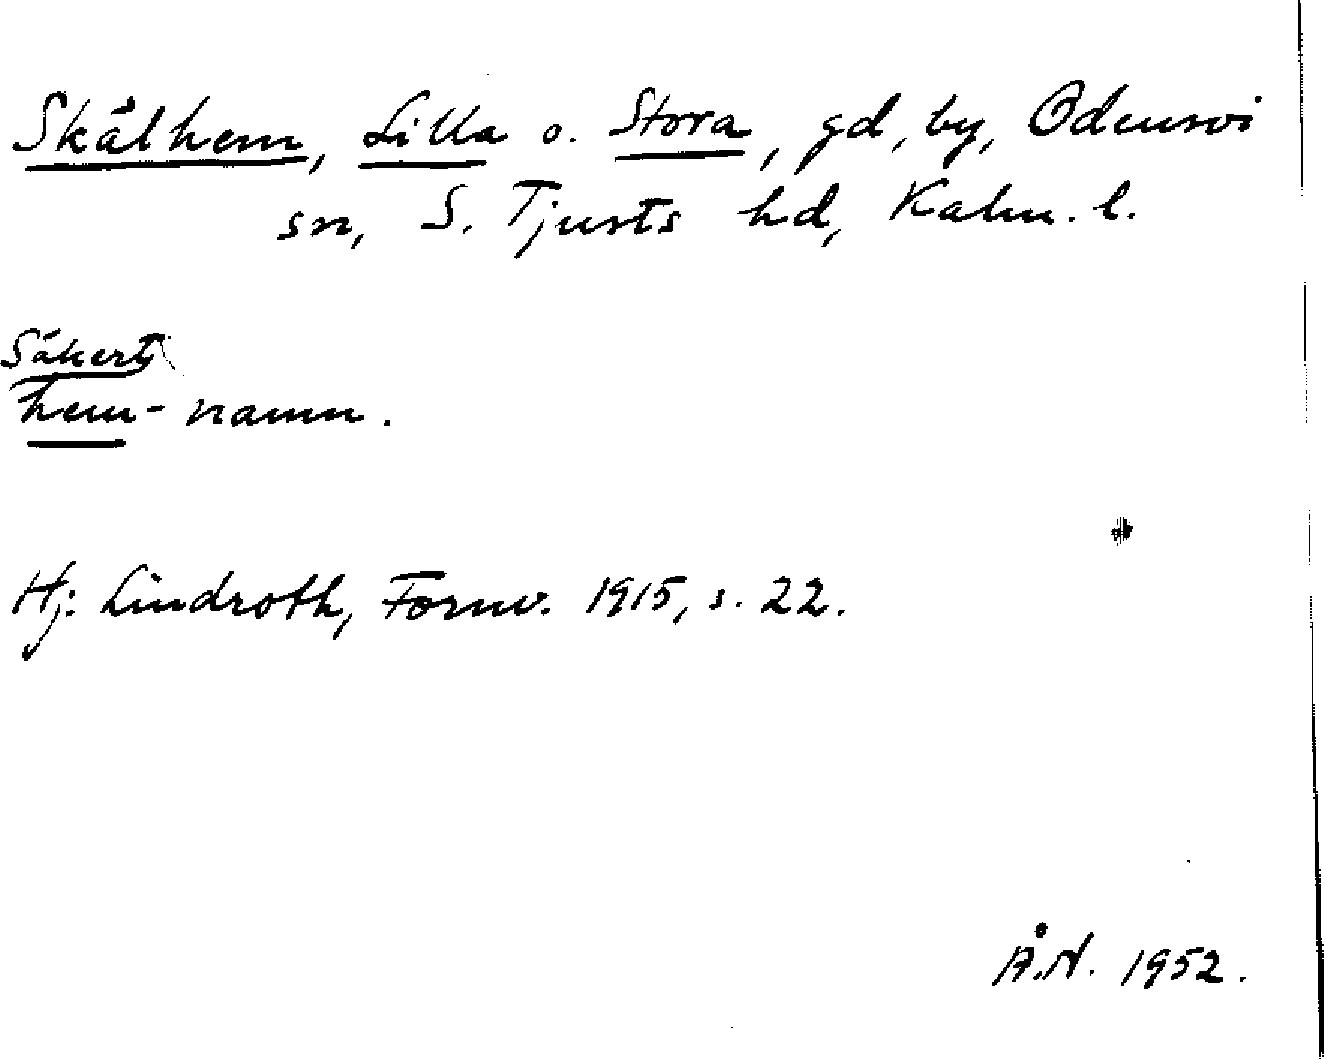 Skålhem, Lilla o. Stora, gd, by, Odensvi
sn, S. Tjusts hd, Kalm. l.
Säkert
hem-namn.
Hj. Lindroth, Fornv. 1915, s. 22.
Å.N. 1952.